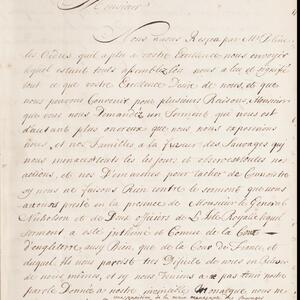 Monsieur
Nous avons Receu par Mr De
les Ordres quil a plu a vostre Excellence nous envoyer
lequel estant tous assemblez nous a leu et signifié
tout ce que vostre Excellence Exige de nous, et que
nous pouvons Convenir pour plusieurs Raisons, Monsieur
que vous nous Demandez un Serment qui nous est
d'autant plus onereux que nous nous exposerions
nous, et nos Familles a la Fureur des Sauvages qui
nous menacent tous les jours et observent toutes nos
actions, et nos Demarches pour tacher de Connoistre
sy nous ne faisons Rien contre le serment que nous
avions presté en la presence de Monsieur le General
Nicholson et de Deux officiers de L'Isle Royalle lequel
serment a esté intimé et Connue de la Cour
d'engleterre, aussy Bien, que de la Cour de France, et
duquel Ils nous pouvoit pas Depuis de nous en
de nous mêmes, et sy nous Venions a ne pas tenir nostre
parole Donnée a nostre manque, nous ne